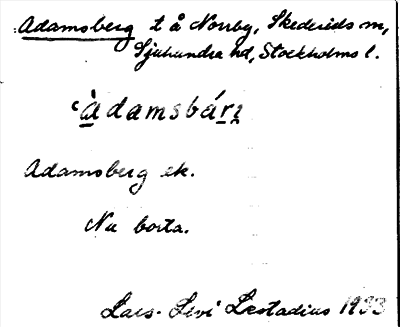 Adamsberg t å Norrby, Skederids sn,
Sjuhundra hd, Stockholms l.
Adamsberg ek.
Nu borta.
Lars-Levi Læstadius 1933